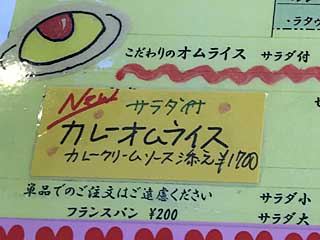 ・ラタ
こだわりのオムライス サラダ付
New
サラダ付
カレーオムライス
カレークリームソース添え ¥1700
単品でのご注文はご遠慮ください
フランスパン ¥200
サラダ小
サラダ大